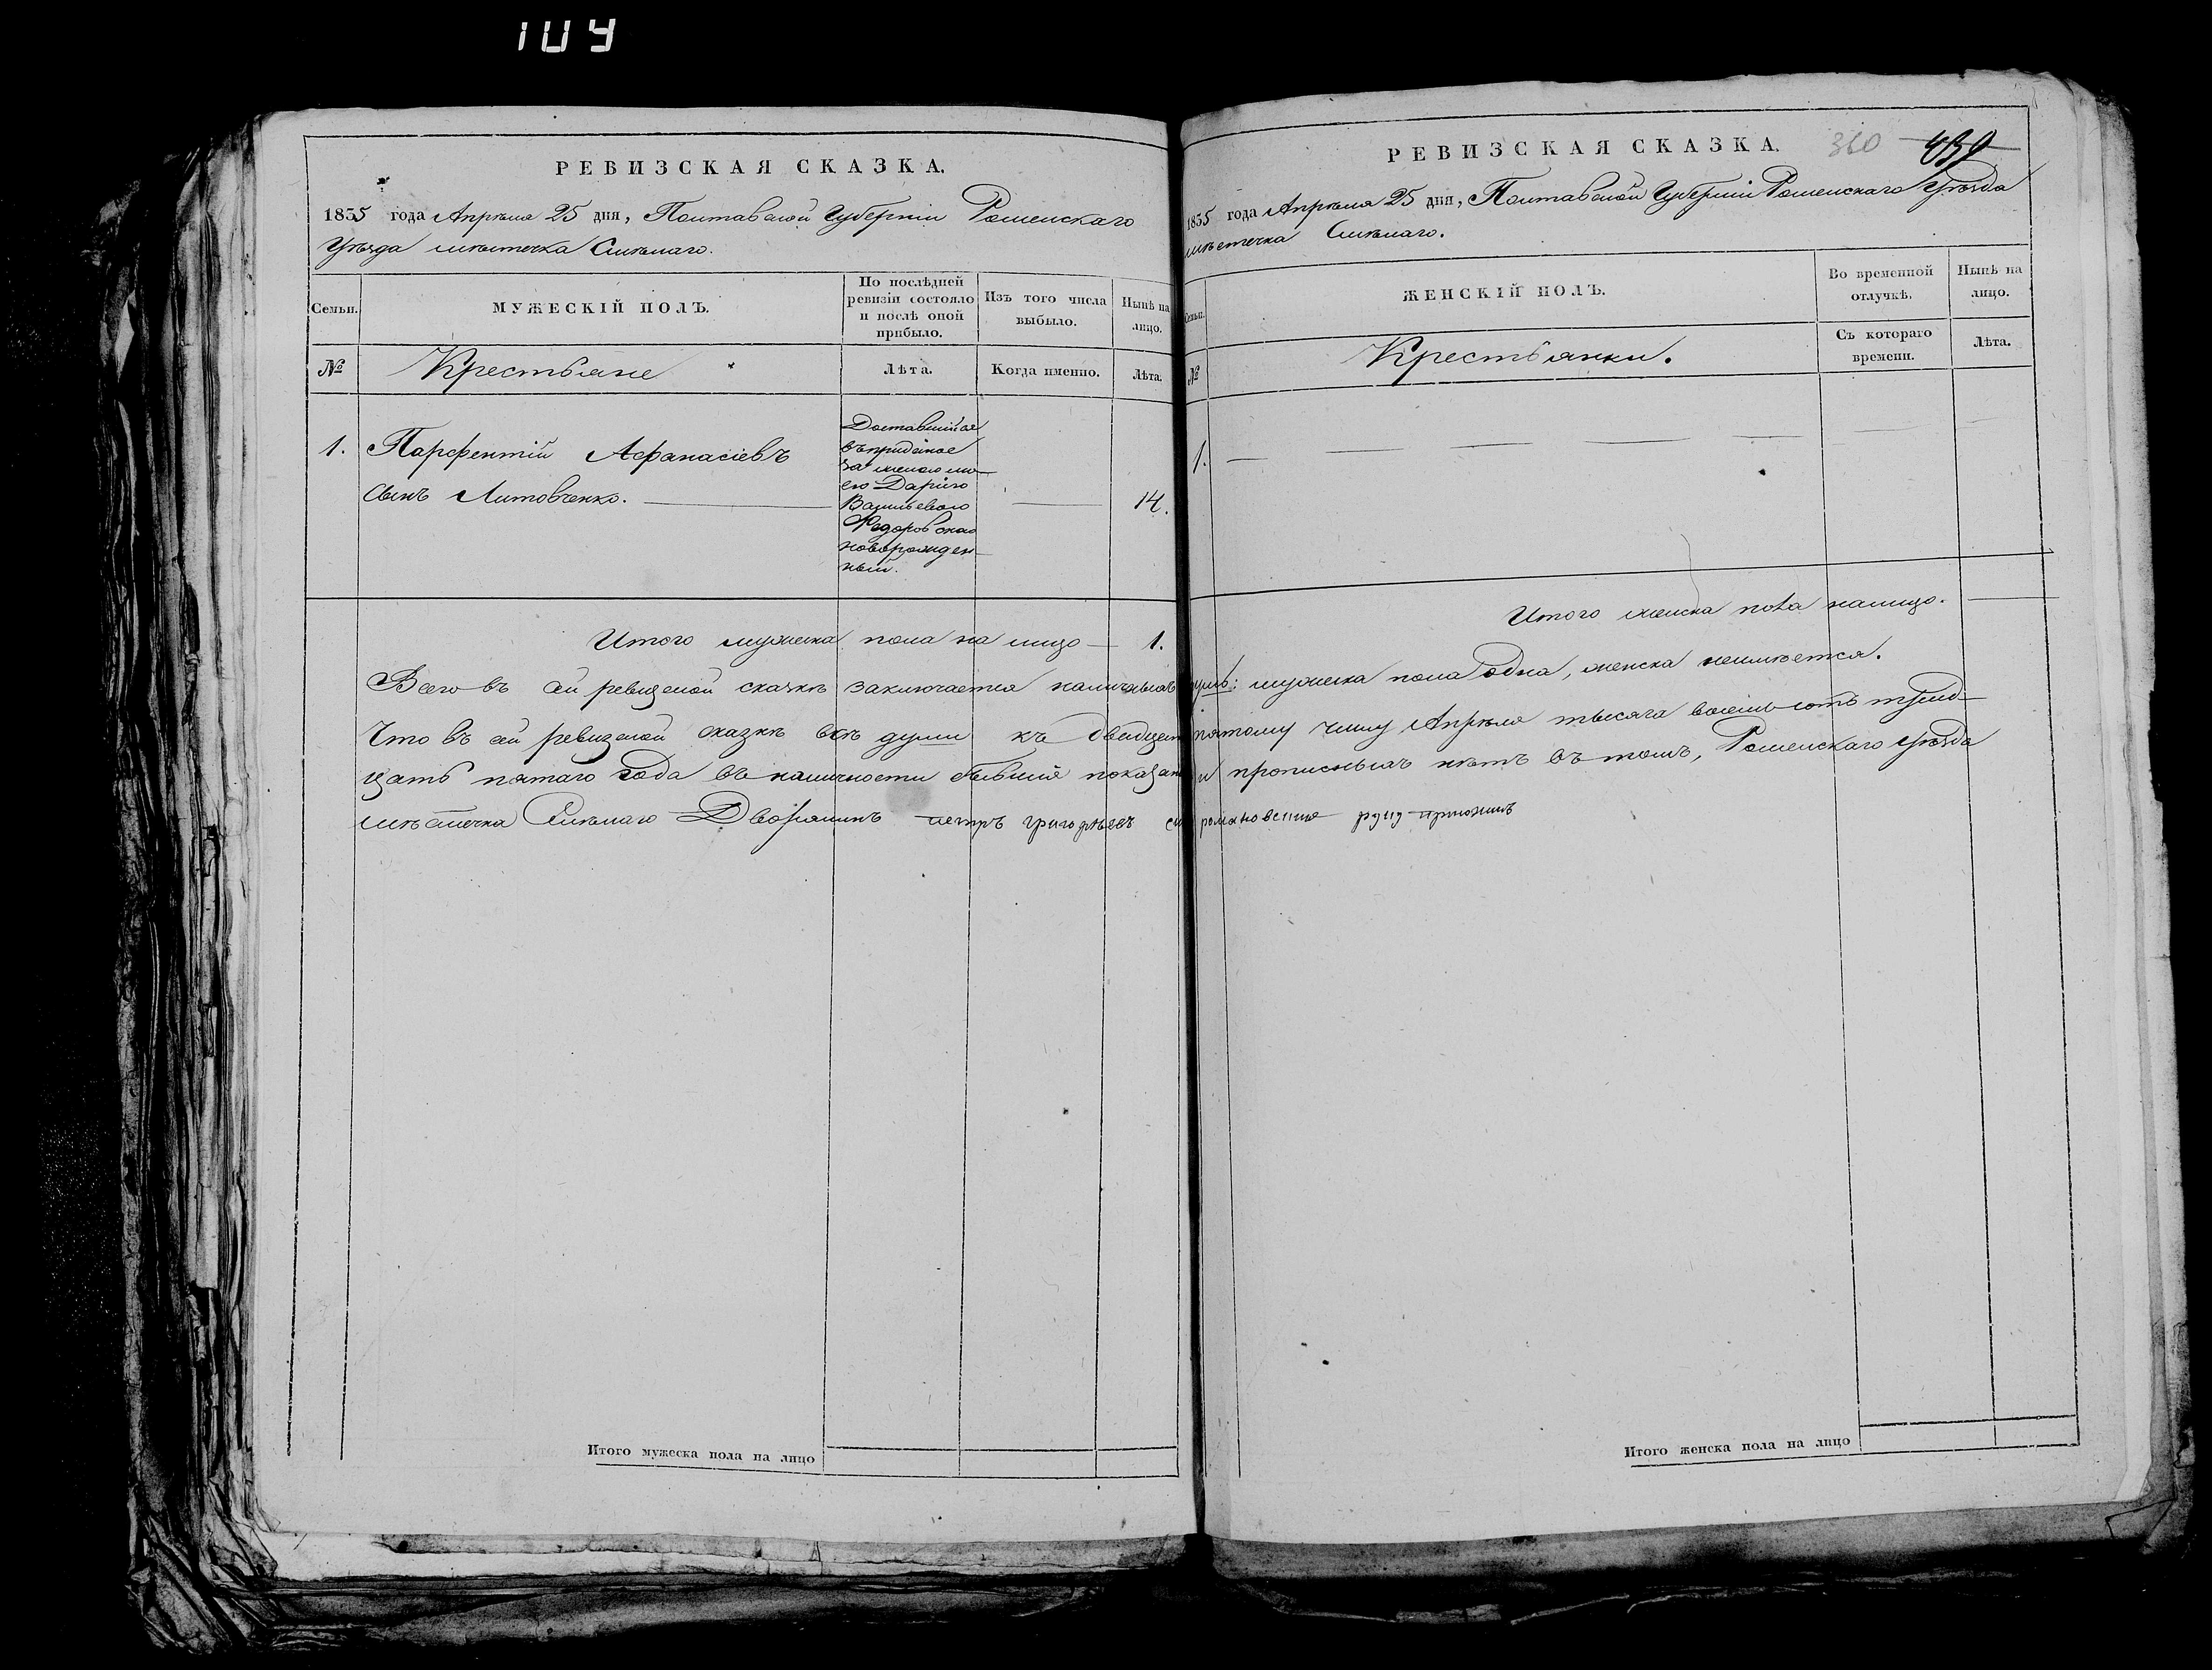 109
РЕВИЗСКАЯ СКАЗКА.
1835 года Апрѣля 25 дня, Полтавской Губерніи Роменскаго
Уѣзда мѣстечка Смѣлаго.
Семьи.
МУЖЕСКІЙ ПОЛЪ.
По послѣдней
ревизіи состояло
и послѣ оной
прибыло.
Изъ того числа
выбыло.
Нынѣ на
лицо.
№
Крестьяне
Лѣта.
Когда именно.
Лѣта.
1. Парфентій Афанасіевъ
сынъ Литовченко.
Доставшійся
въ приданое
за женою мо-
ею Дарією
Васильевою
Федоровскою
новорожден-
ный.
14.
Итого мужеска пола на лицо — 1.
Итого мужеска пола на лицо
РЕВИЗСКАЯ СКАЗКА.
360
439
1835 года Апрѣля 25 дня, Полтавской Губерніи Роменскаго Уѣзда
мѣстечка Смѣлаго.
Семьи.
ЖЕНСКІЙ ПОЛЪ.
Во временной
отлучкѣ.
Нынѣ на
лицо.
№
Крестьянки.
Съ котораго
времени.
Лѣта.
1.
Итого женска пола налицо.
Всего въ сей ревизской сказкѣ заключается наличныхъ душъ: мужеска пола одна, женска неимѣется.
Что въ сей ревизской сказкѣ всѣ души къ двадцать пятому числу Апрѣля тысяча восемь сотъ трид-
цать пятаго года въ наличности бывшіе показаны и прописныхъ нѣтъ въ томъ, Роменскаго уѣзда
мѣстечка Смѣлаго Дворянинъ петръ григорьевъ сынъ руку приложилъ
Итого женска пола на лицо